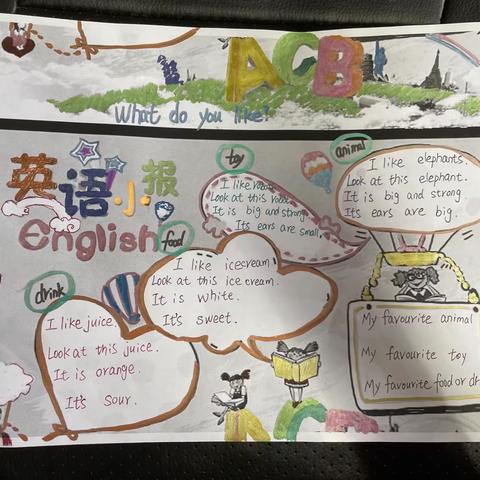 ACB
What do you like?
英语小报
English
toy
I like robots.
Look at this robot.
It is big and strong.
Its ears are small.
animal
I like elephants.
Look at this elephant.
It is big and strong.
Its ears are big.
food
I like icecream.
Look at this ice cream.
It is white.
It's sweet.
drink
I like juice.
Look at this juice.
It is orange.
It's sour.
My favourite animal
My favourite toy
My favourite food or dr
ACB